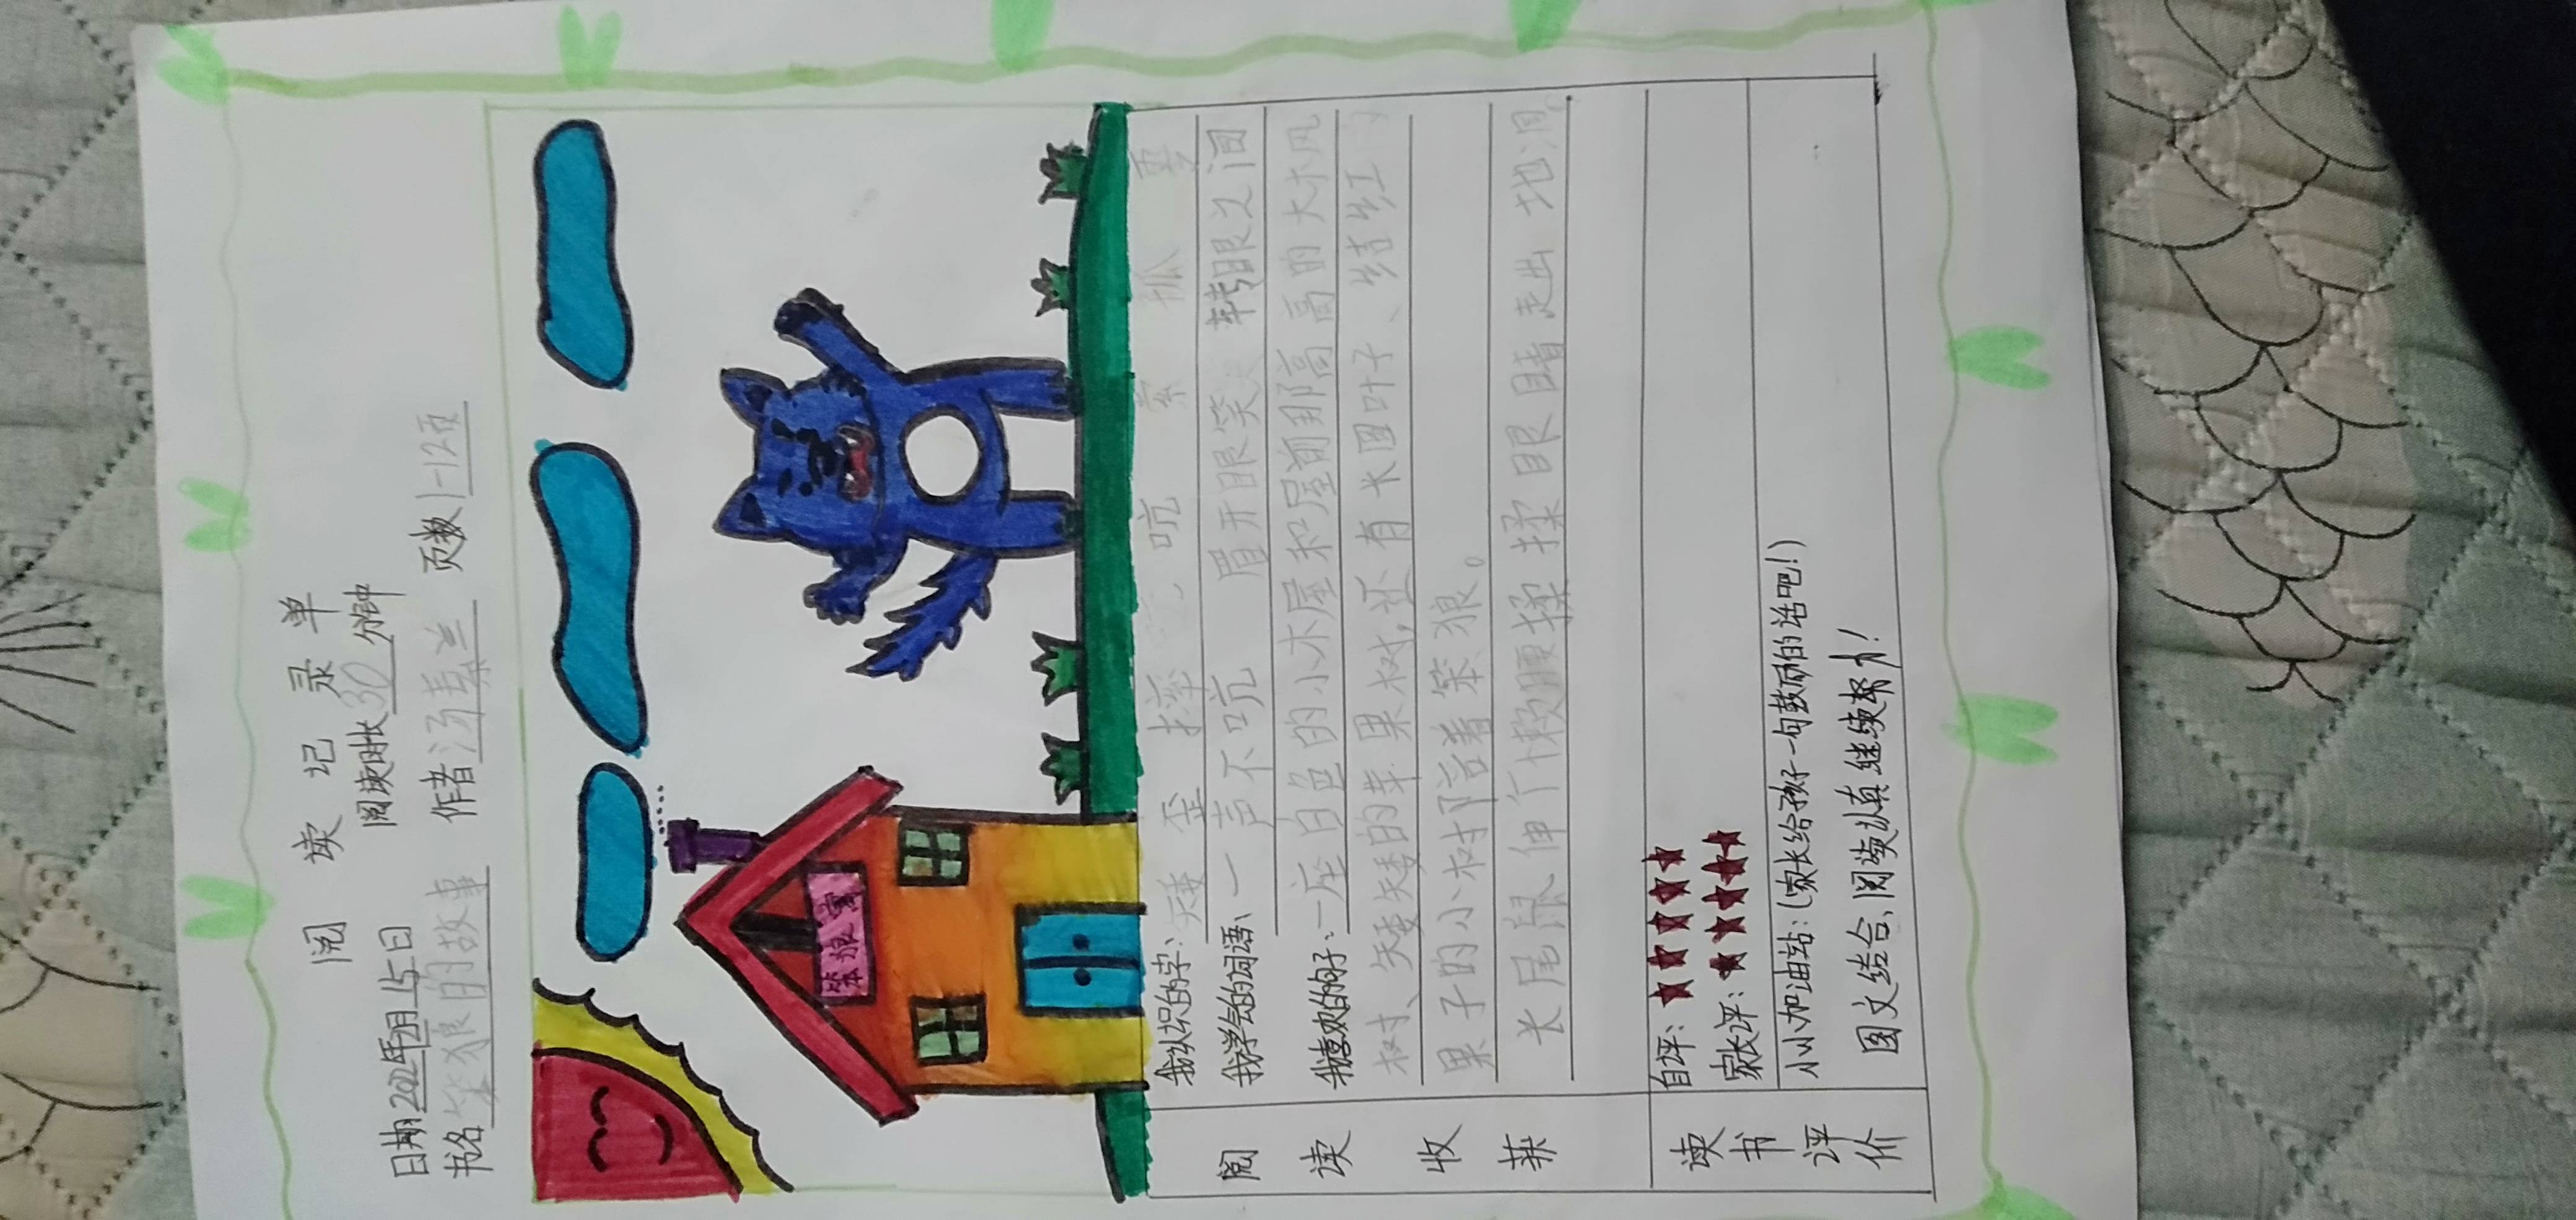 阅读记录单
日期2022年2月15日 阅读时长30分钟
书名笨狼的故事 作者汤素兰 页数1-12页
笨狼 窝
我认识的字：矮 歪 摔 吭 索 抓
我学会的词语：一声不吭 眉开眼笑 转眼之间
我喜欢的句子：一座白色的小木屋和屋前那高高的大木枫
树、矮矮的苹果树，还有长圆叶子、结红的
果子的小树陪着笨狼。
长尾鼠伸伸懒腰揉揉眼睛走出地洞。
阅读收获
自评：★★★★★
家长评：★★★★★
小小加油站：（家长给孩子一句鼓励的话吧！）
图文结合，阅读认真，继续努力！
读书评价